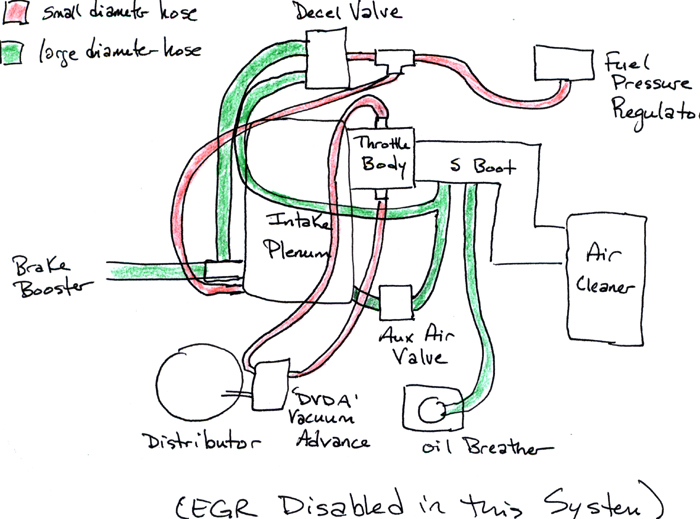 small diameter hose
large diameter hose
Decel Valve
Fuel
Pressure
Regulato
Throttle
Body
S Boot
Intake
Plenum
Air
Cleaner
Brake
Booster
Aux Air
Valve
'DVDA'
Vacuum
Advance
Distributor
oil Breather
(EGR Disabled in this System)